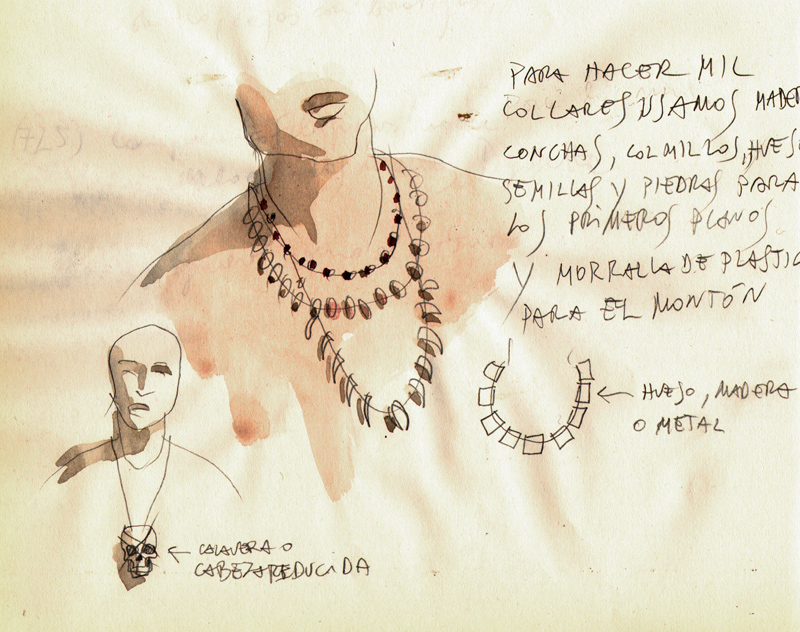 PARA HACER MIL
COLLARES USAMOS MADER
CONCHAS, COLMILLOS, HUESO
SEMILLAS Y PIEDRAS PARA
LOS PRIMEROS PLANOS
Y MORRALLA DE PLASTIC
PARA EL MONTÓN
← HUESO, MADERA
O METAL
← CALAVERA O
CABEZA REDUCIDA